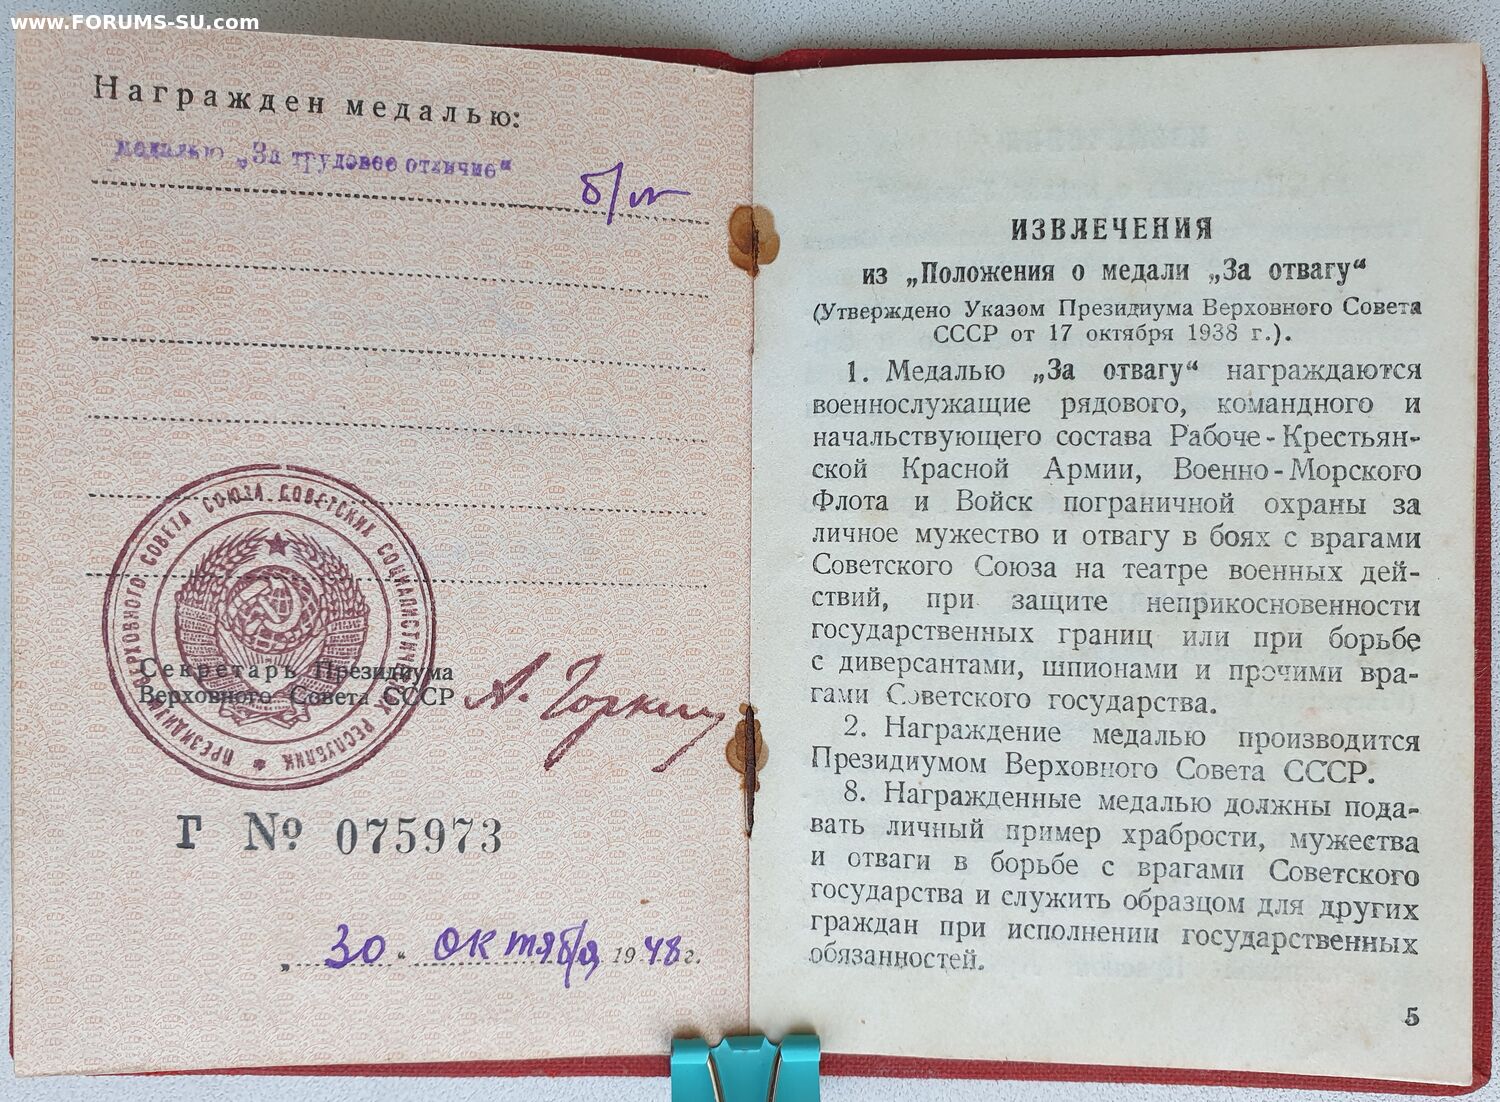 www.FORUMS-SU.com
Награжден медалью:
медалью „За трудовое отличие“ б/№
ПРЕЗИДИУМ ВЕРХОВНОГО СОВЕТА СОЮЗА СОВЕТСКИХ СОЦИАЛИСТИЧЕСКИХ РЕСПУБЛИК
Секретарь Президиума
Верховного Совета СССР А. Горкин
Г № 075973
„30“ октября 1948 г.
ИЗВЛЕЧЕНИЯ
из „Положения о медали „За отвагу“
(Утверждено Указом Президиума Верховного Совета
СССР от 17 октября 1938 г.).
1. Медалью „За отвагу“ награждаются
военнослужащие рядового, командного и
начальствующего состава Рабоче-Крестьян-
ской Красной Армии, Военно-Морского
Флота и Войск пограничной охраны за
личное мужество и отвагу в боях с врагами
Советского Союза на театре военных дей-
ствий, при защите неприкосновенности
государственных границ или при борьбе
с диверсантами, шпионами и прочими вра-
гами Советского государства.
2. Награждение медалью производится
Президиумом Верховного Совета СССР.
8. Награжденные медалью должны пода-
вать личный пример храбрости, мужества
и отваги в борьбе с врагами Советского
государства и служить образцом для других
граждан при исполнении государственных
обязанностей.
5